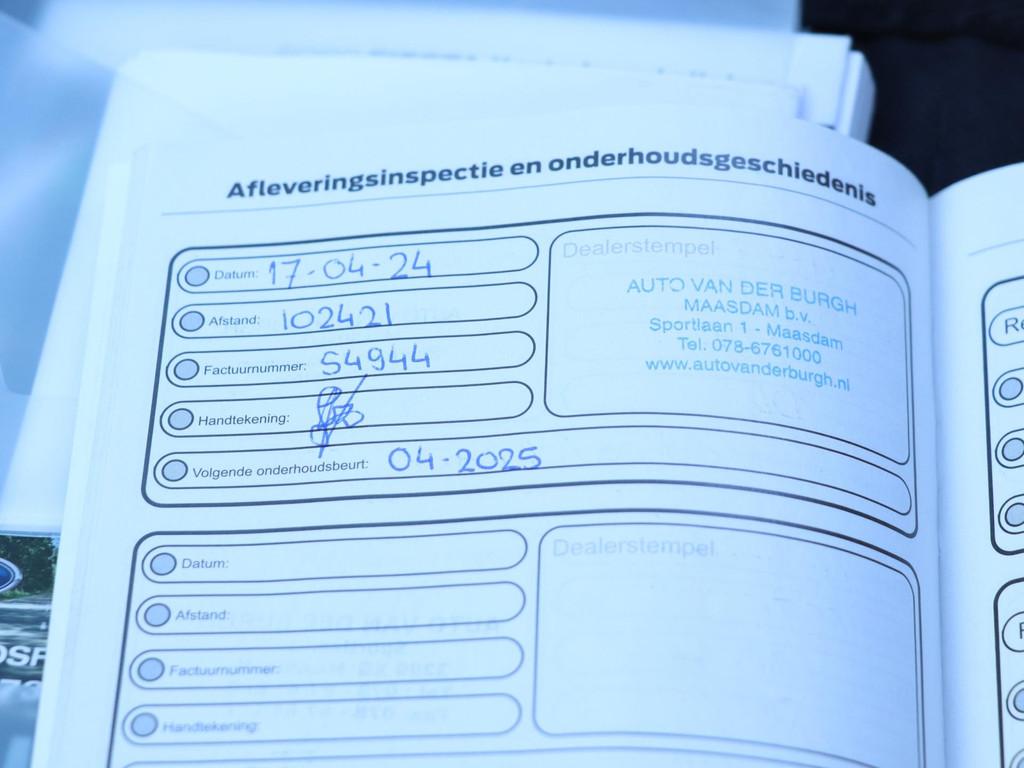 Afleveringsinspectie en onderhoudsgeschiedenis
Datum: 17-04-24
Afstand: 102421
Factuurnummer: S4944
Handtekening:
Volgende onderhoudsbeurt: 04-2025
Dealerstempel
AUTO VAN DER BURGH
MAASDAM b.v.
Sportlaan 1 - Maasdam
Tel. 078-6761000
www.autovanderburgh.nl
Datum:
Afstand:
Factuurnummer:
Handtekening:
Dealerstempel